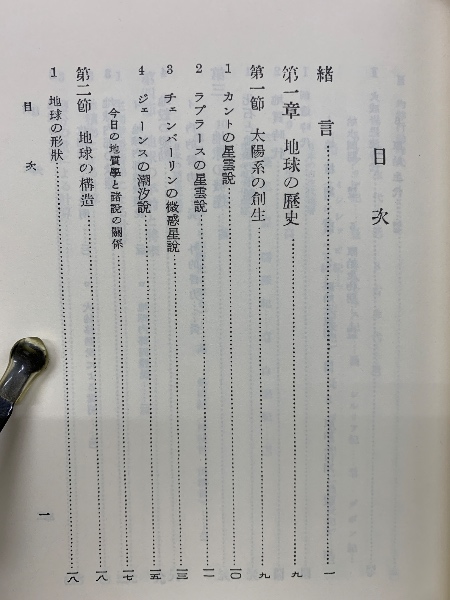 目次
緒言……一
第一章 地球の歷史……九
第一節 太陽系の創生……九
1 カントの星雲說……一〇
2 ラプラースの星雲說……一一
3 チェンバーリンの微惑星說……一三
4 ジェーンスの潮汐說……一五
今日の地質學と諸說の關係……一七
第二節 地球の構造……一八
1 地球の形狀……一八
目次
一